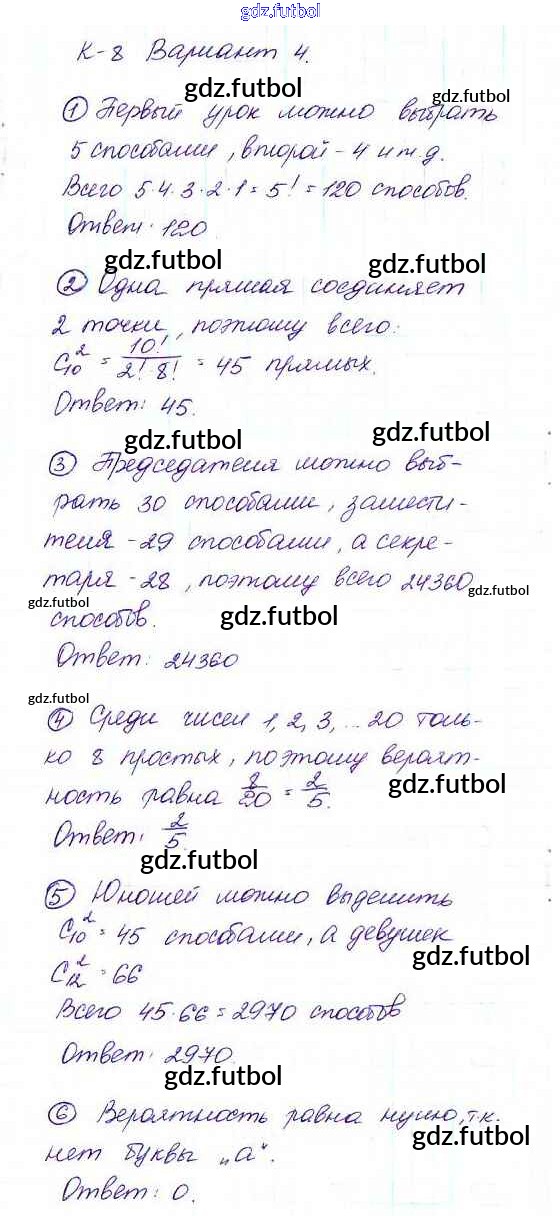 gdz.futbol
К-8 Вариант 4.
gdz.futbol
gdz.futbol
① Первый урок можно выбрать
5 способами, второй - 4 и т.д.
Всего 5·4·3·2·1 = 5! = 120 способов.
Ответ: 120
gdz.futbol
gdz.futbol
② Одна прямая соединяет
2 точки, поэтому всего:
C₁₀² = 10!/(2! 8!) = 45 прямых.
Ответ: 45.
gdz.futbol
gdz.futbol
③ Председателя можно выб-
рать 30 способами, замести-
теля - 29 способами, а секре-
таря - 28, поэтому всего 24360
gdz.futbol
gdz.futbol
способов.
gdz.futbol
Ответ: 24360
gdz.futbol
④ Среди чисел 1, 2, 3, ... 20 толь-
ко 8 простых, поэтому вероят-
gdz.futbol
ность равна 8/20 = 2/5.
Ответ: 2/5.
gdz.futbol
⑤ Юношей можно выделить
C₁₀² = 45 способами, а девушек
gdz.futbol
C₁₂² = 66
Всего 45·66 = 2970 способов
Ответ: 2970.
gdz.futbol
⑥ Вероятность равна нулю, т.к.
gdz.futbol
нет буквы „а".
Ответ: 0.